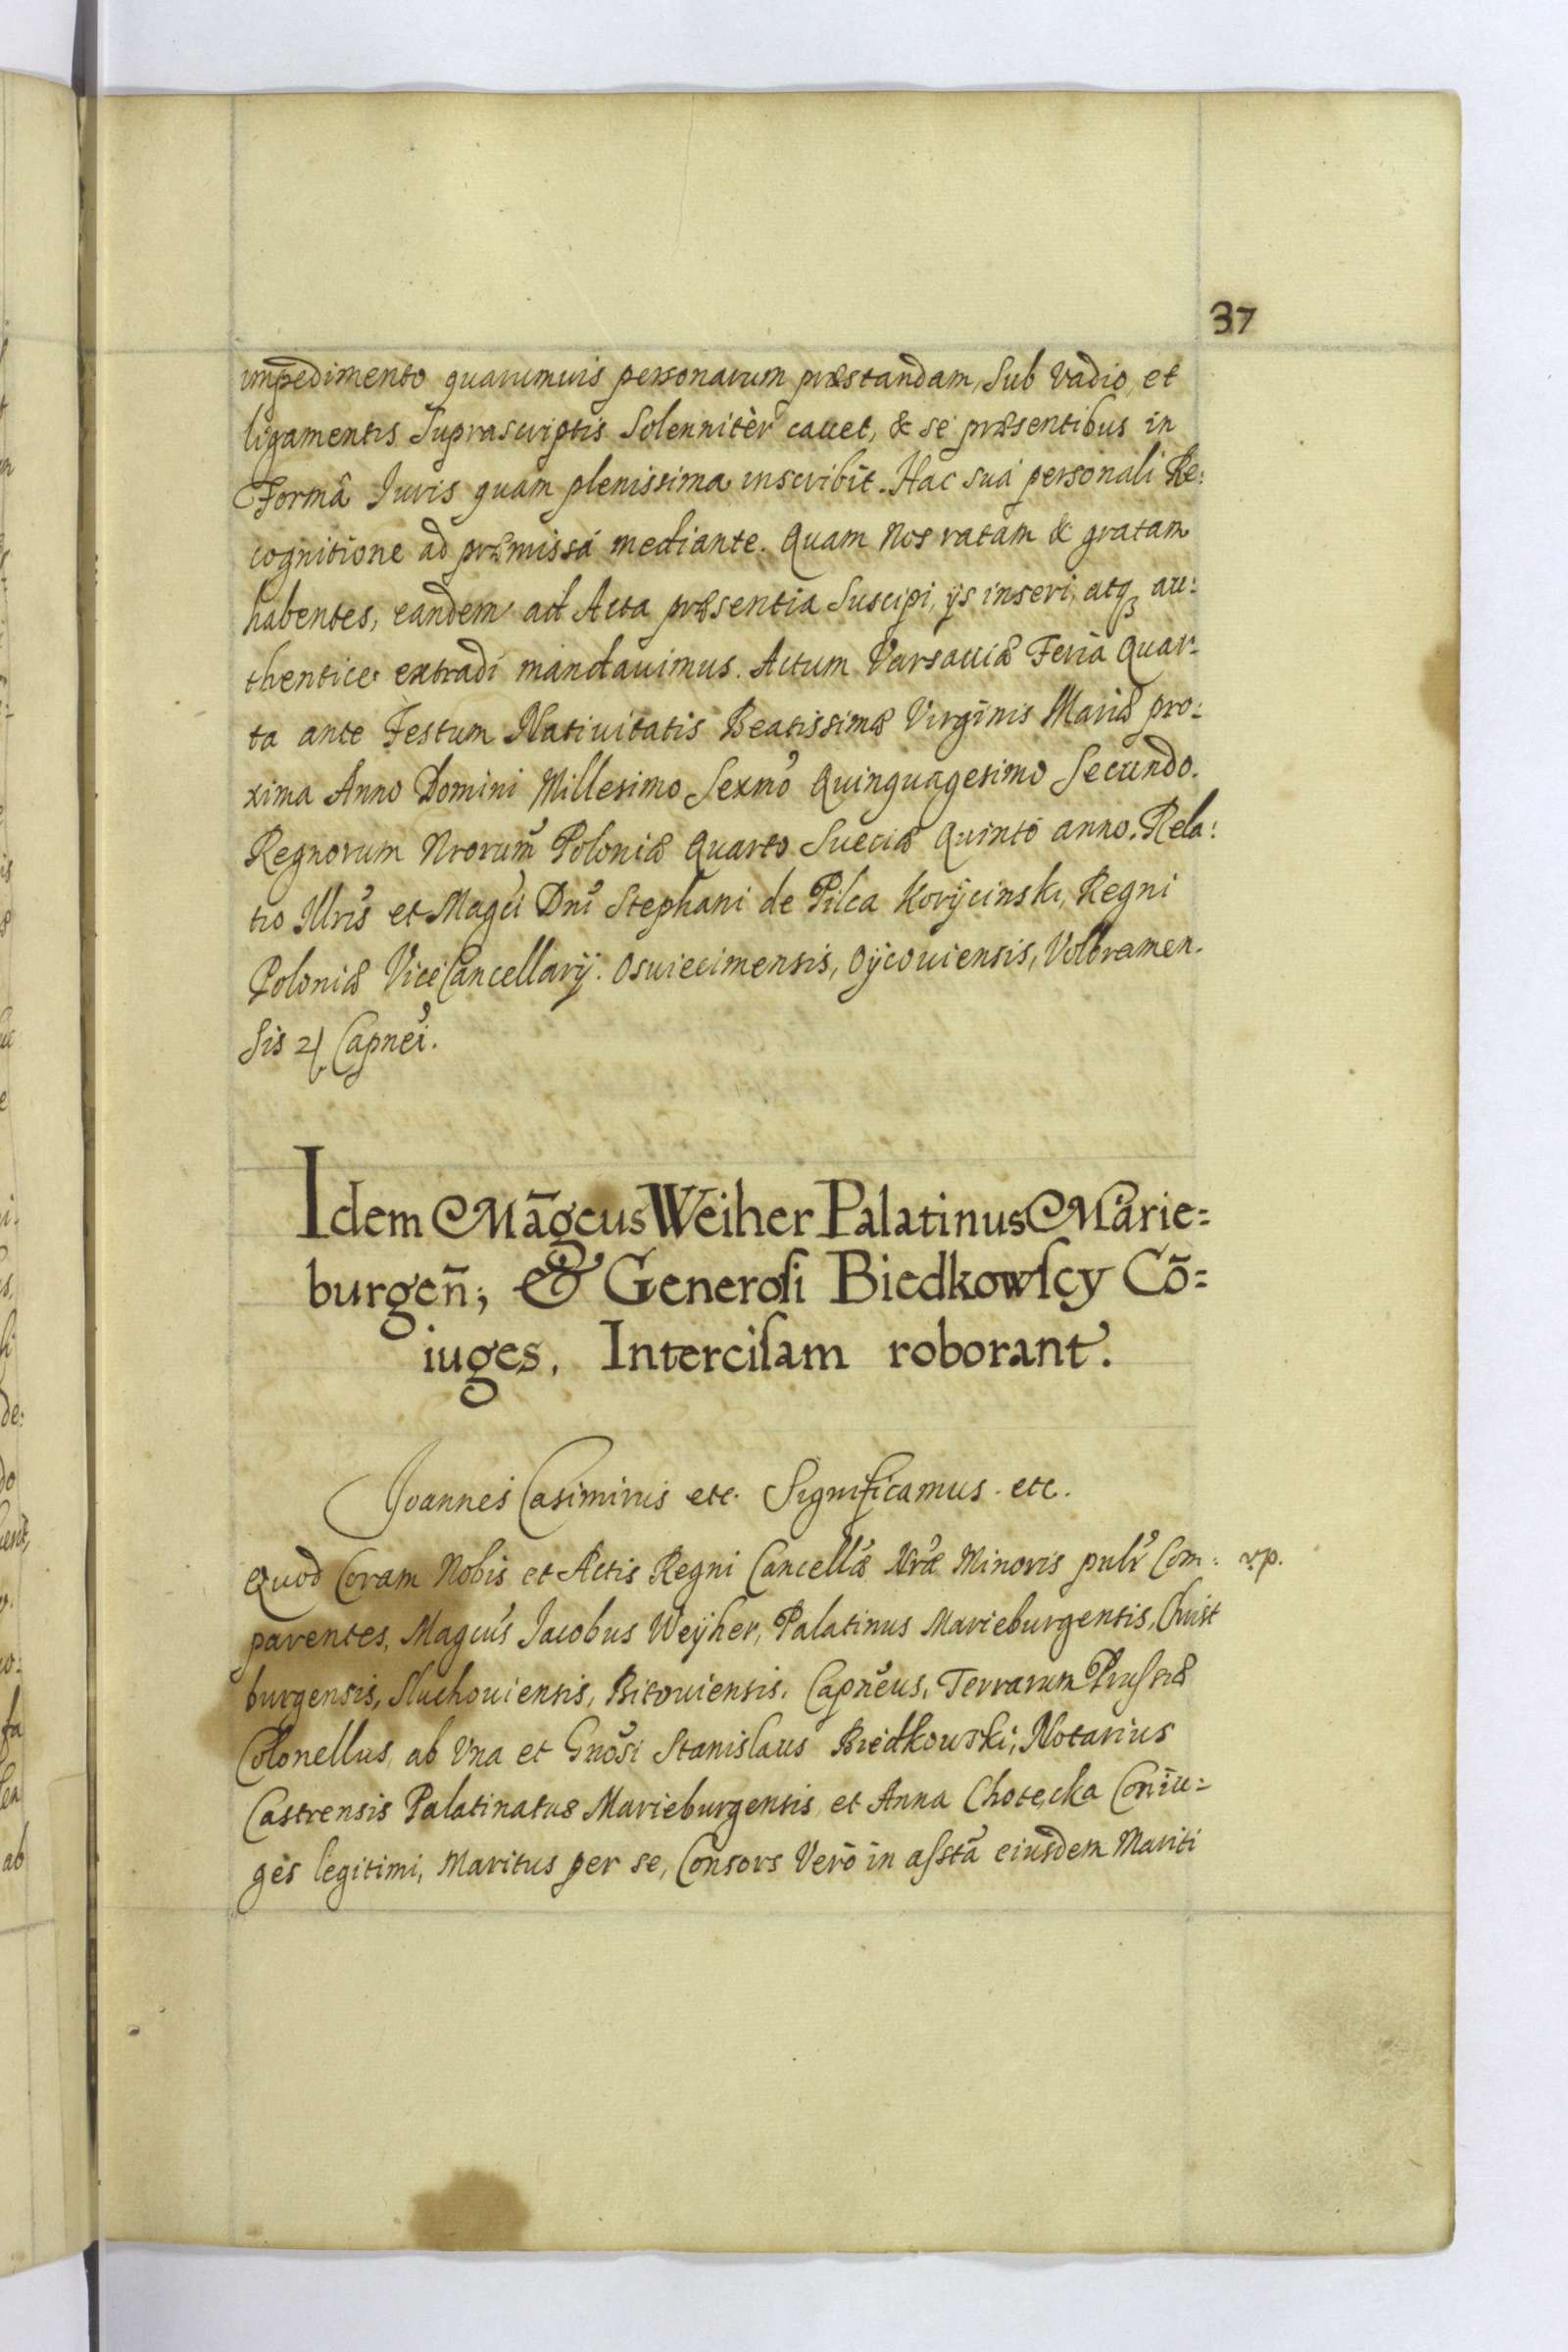 37
impedimento quarumuis personarum præstandam, Sub Vadio, et
ligamentis Suprascriptis Solennitèr cauet, & se præsentibus in
Formâ Iuris quam plenissima inscribit. Hac suá personali Re:
cognitione ad præmissá mediante. Quam Nos ratam & gratam
habentes, eandem ad Acta præsentia Suscipi, ijs inseri, atqꝫ au:
thentice extradi mandauimus. Actum Varsauiæ Feria Quar-
ta ante Festum Natiuitatis Beatissimæ Virginis Mariæ pro:
xima Anno Domini Millesimo Sexmo Quinquagesimo Secundo.
Regnorum Nrorum Poloniæ Quarto Sueciæ Quinto anno. Rela:
tio Illris et Magci Dni Stephani de Pilca Korÿcinski, Regni
Poloniæ ViceCancellarÿ. Osuiecimensis, Oÿcouiensis, Volbramen-
sis Capnei.
Idem Māgcus Weiher Palatinus Marie=
burgen̄; & Generosi Biedkowscy Cō=
iuges, Intercisam roborant.
Joannes Casimirus etc. Significamus. etc.
Quod Coram Nobis et Actis Regni Cancellæ Nræ Minoris pulr Com: rp.
parentes, Magcus Jacobus Weÿher, Palatinus Marieburgensis, Christ
burgensis, Sluchouiensis, Bitouiensis. Capneus, Terrarum Prussiæ
Colonellus, ab Vna et Gnosi Stanislaus Biedkowski, Notarius
Castrensis Palatinatus Marieburgensis, et Anna Chotecka Coniu=
ges legitimi, Maritus per se, Consors Verō in asstā eiusdem Mariti